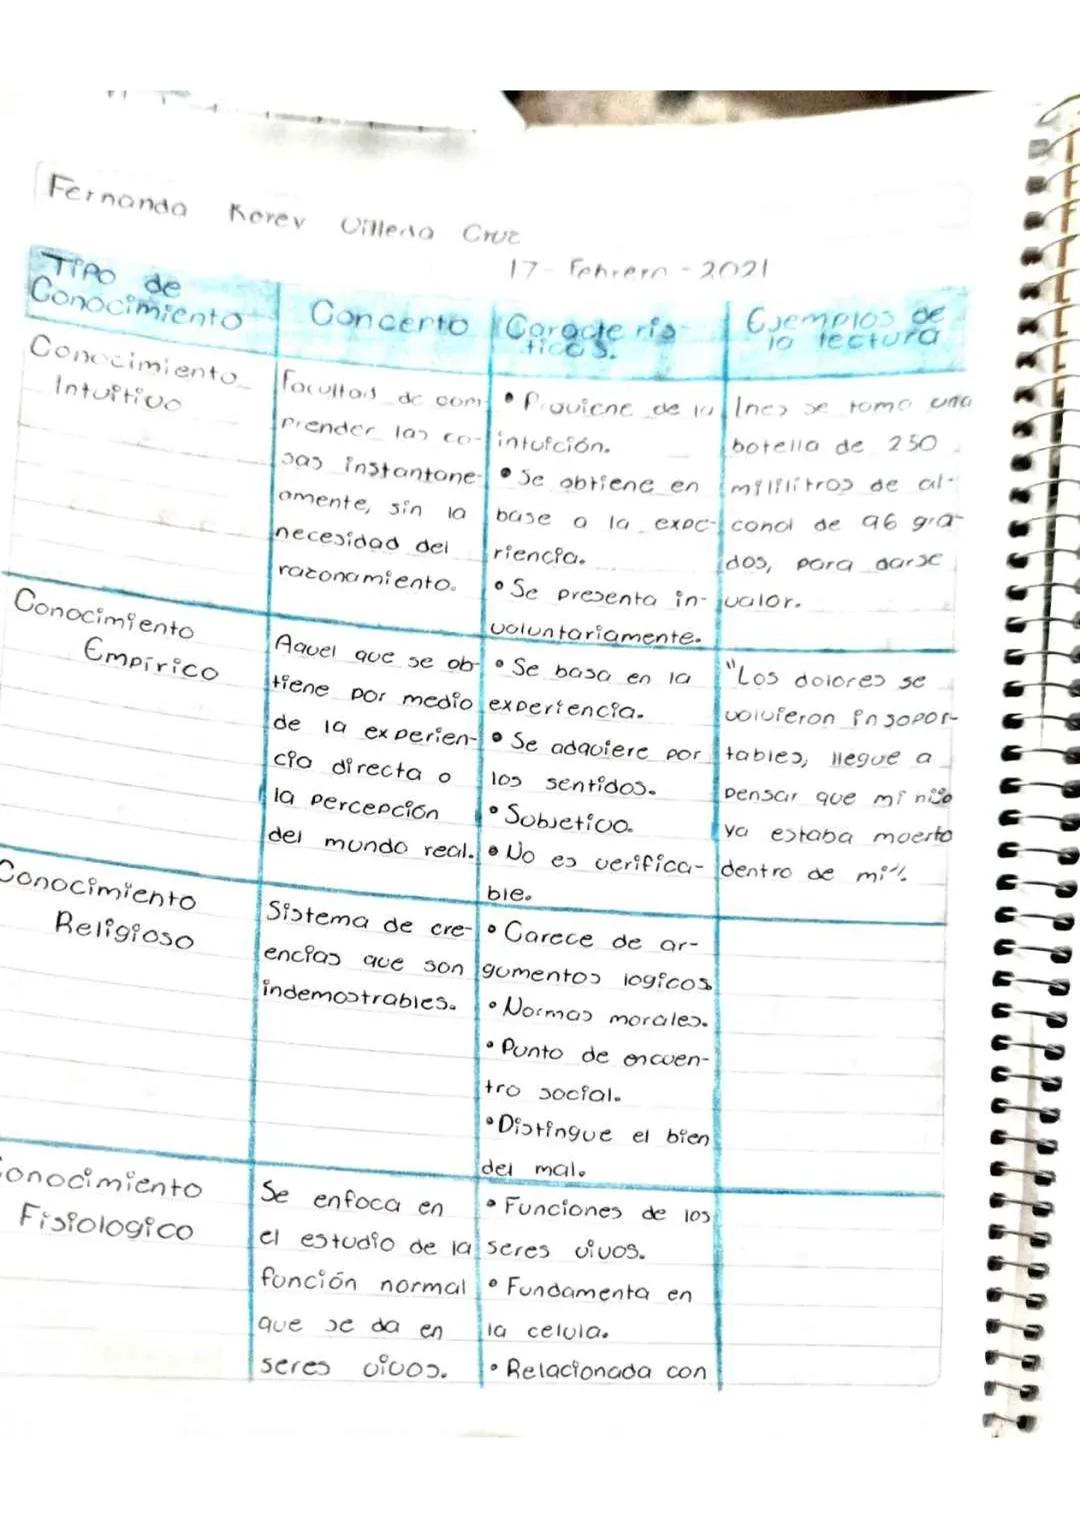 Fernanda Karev Villena Cruz
17- Febrero - 2021
Tipo de
Conocimiento
Concepto
Caracterís-
ticas.
Ejemplos de
la lectura
Conocimiento
Intuitivo
Facultad de com
prender las co-
sas instantane-
amente, sin la
necesidad del
razonamiento.
• Proviene de la
intuición.
• Se obtiene en
base a la expe-
riencia.
• Se presenta in-
voluntariamente.
Ines se toma una
botella de 250
mililitros de al-
cohol de 96 gra-
dos, para darse
valor.
Conocimiento
Empírico
Aquel que se ob-
tiene por medio
de la experien-
cia directa o
la percepción
del mundo real.
• Se basa en la
experiencia.
• Se adquiere por
los sentidos.
• Subjetivo.
• No es verifica-
ble.
"Los dolores se
volvieron insopor-
tables, llegue a
pensar que mi niño
ya estaba muerto
dentro de mi".
Conocimiento
Religioso
Sistema de cre-
encias que son
indemostrables.
• Carece de ar-
gumentos logicos
• Normas morales.
• Punto de encuen-
tro social.
• Distingue el bien
del mal.
Conocimiento
Fisiologico
Se enfoca en
el estudio de la
función normal
que se da en
seres vivos.
• Funciones de los
seres vivos.
• Fundamenta en
la celula.
• Relacionada con